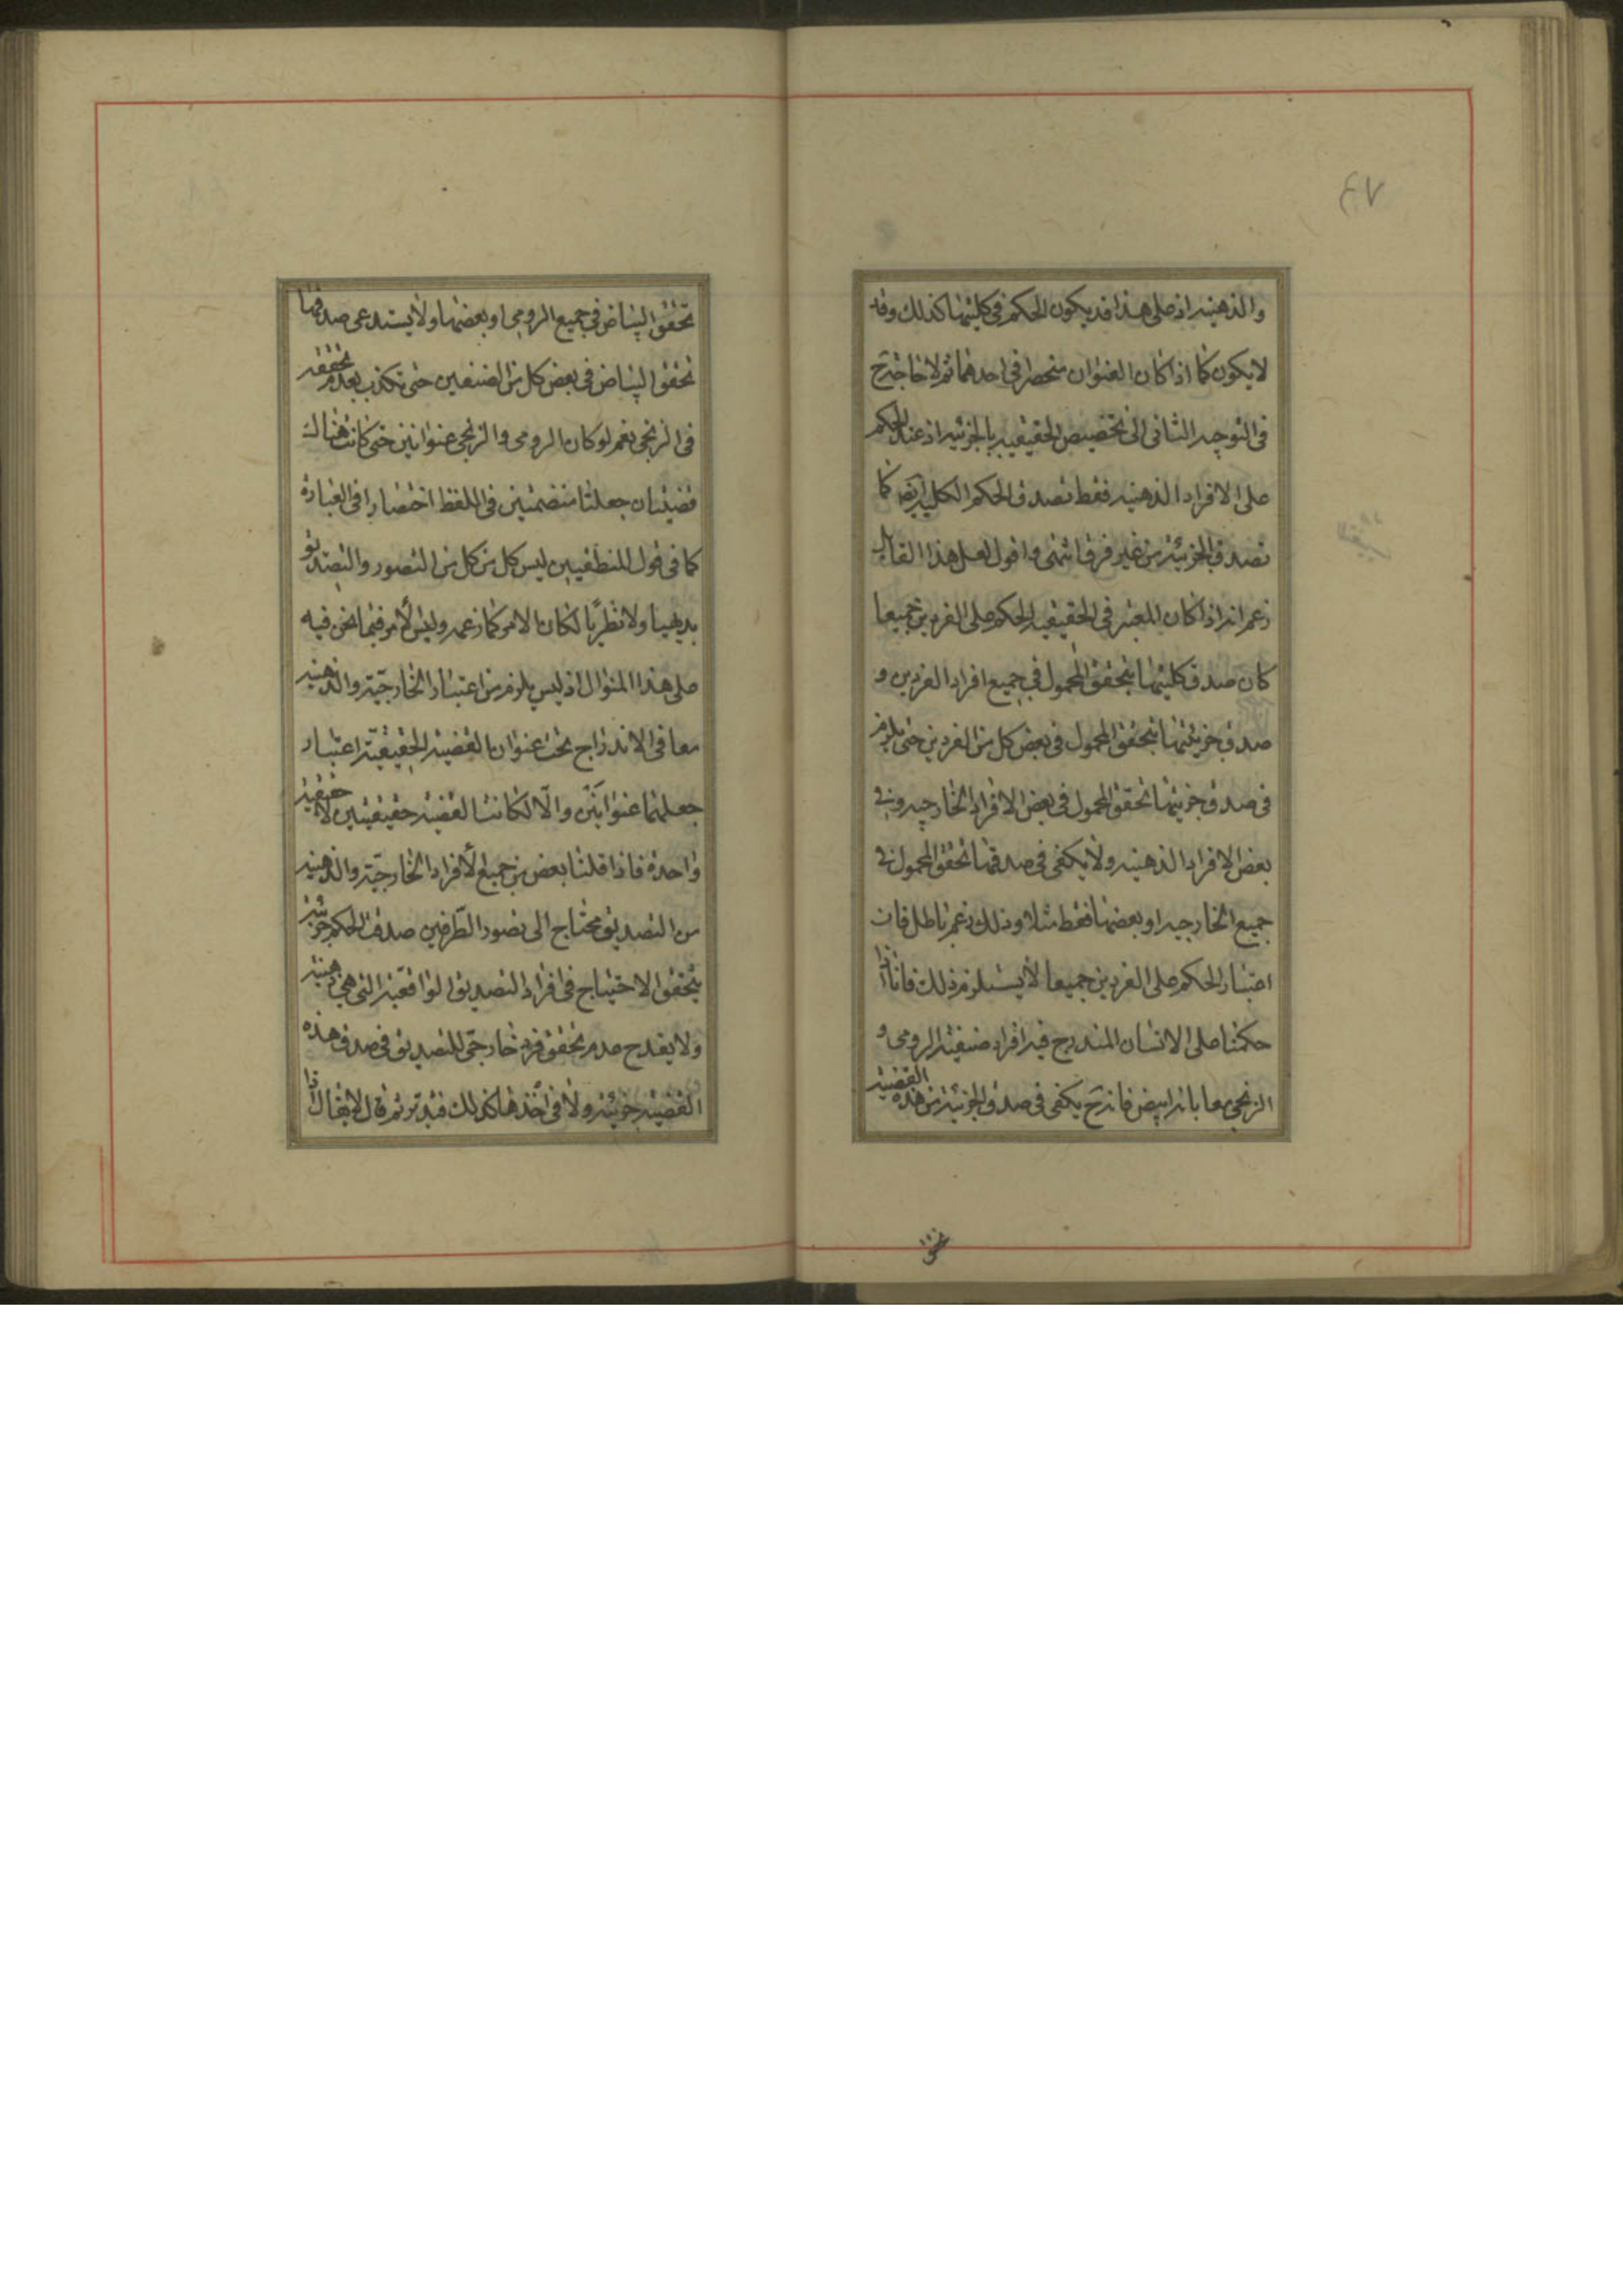 والذهنيه اذ على هذا قد يكون الحكم في كليتها كذلك وقد
لا يكون كما اذا كان العنوان منحصرا في احدهما ثم لا حاجة ح
في التوجيه الثاني الى تخصيص الحقيقيه بالجزئيه اذ عند الحكم
على الافراد الذهنيه فقط تصدق الحكم الكليه ايضا كما
تصدق الجزئية من غير فرق انتهى واقول لعل هذا القائل
زعم انه اذا كان المعتبر في الحقيقيه الحكم على الفردين جميعا
كان صدق كليتها بتحقق المحمول في جميع افراد الفردين و
صدق جزئيتها بتحقق المحمول في بعض كل من الفردين حتى يلزم
في صدق جزئيتها تحقق المحمول في بعض الافراد الخارجيه وفي
بعض الافراد الذهنيه ولا يكفي في صدقها تحقق المحمول في
جميع الخارجيه او بعضها فقط مثلا وذلك زعم باطل فان
اعتبار الحكم على الفردين جميعا لا يستلزم ذلك فانا اذا
حكمنا على الانسان المندرج فيه افراد صنفيه الرومي و
الزنجي معا بانه ابيض فانه ح يكفي في صدق الجزئية من هذه القضية
تحقق
تحقق البياض في جميع الرومي او بعضها ولا يستدعي صدقها
تحقق البياض في بعض كل من الصنفين حتى تكذب بعدم تحققه
في الزنجي نعم لو كان الرومي والزنجي عنوانين حتى كانت هناك
قضيتان جعلتا منضمتين في اللفظ اختصارا في العبارة
كما في قول المنطقيين ليس كل من كل من التصور والتصديق
بديهيا ولا نظريا لكان الامر كما زعمه وليس الامر فيما نحن فيه
على هذا المنوال اذ ليس يلزم من اعتبار الخارجية والذهنيه
معا في الاندراج تحت عنوان القضية الحقيقية اعتبار
جعلهما عنوانين والا لكانت القضية حقيقيتين لا حقيقية
واحدة فاذا قلنا بعض من جميع الافراد الخارجية والذهنيه
من التصديق محتاج الى تصور الطرفين صدق الحكم جزئية
بتحقق الاحتياج في افراد التصديق الواقعية التي هي ذهنية
ولا يقدح عدم تحقق فرد خارجي للتصديق في صدق هذه
القضية جزئية ولا في اخذها كذلك فتدبر ثم قال لا يقال اذا